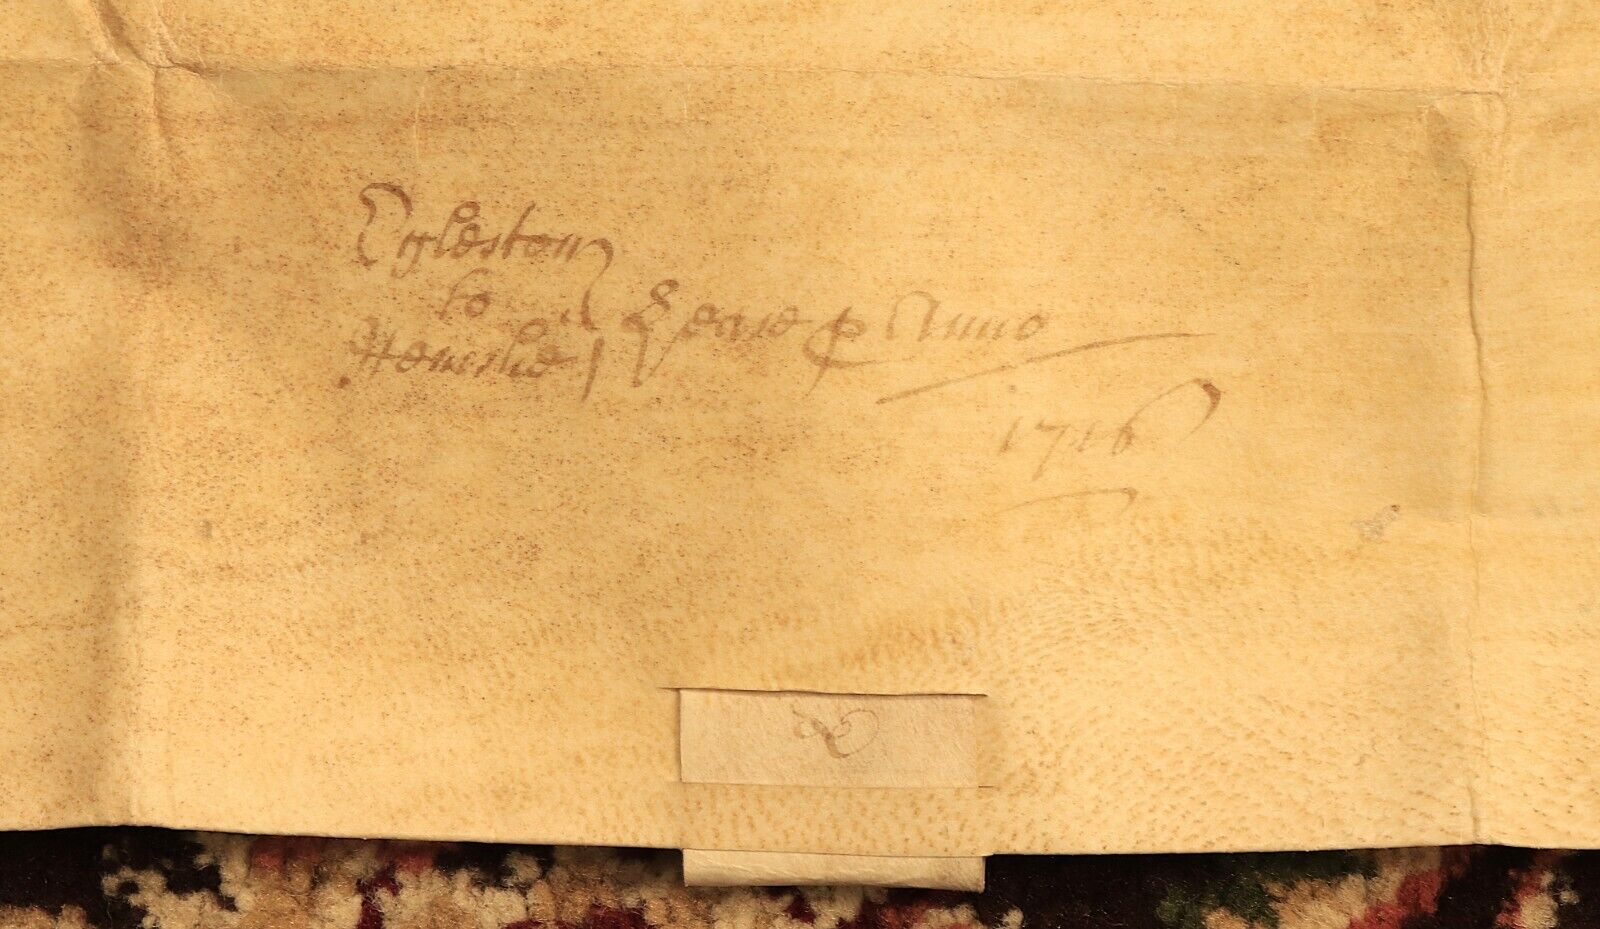 Egleston
to
Henslie } Lease p Anno
1716